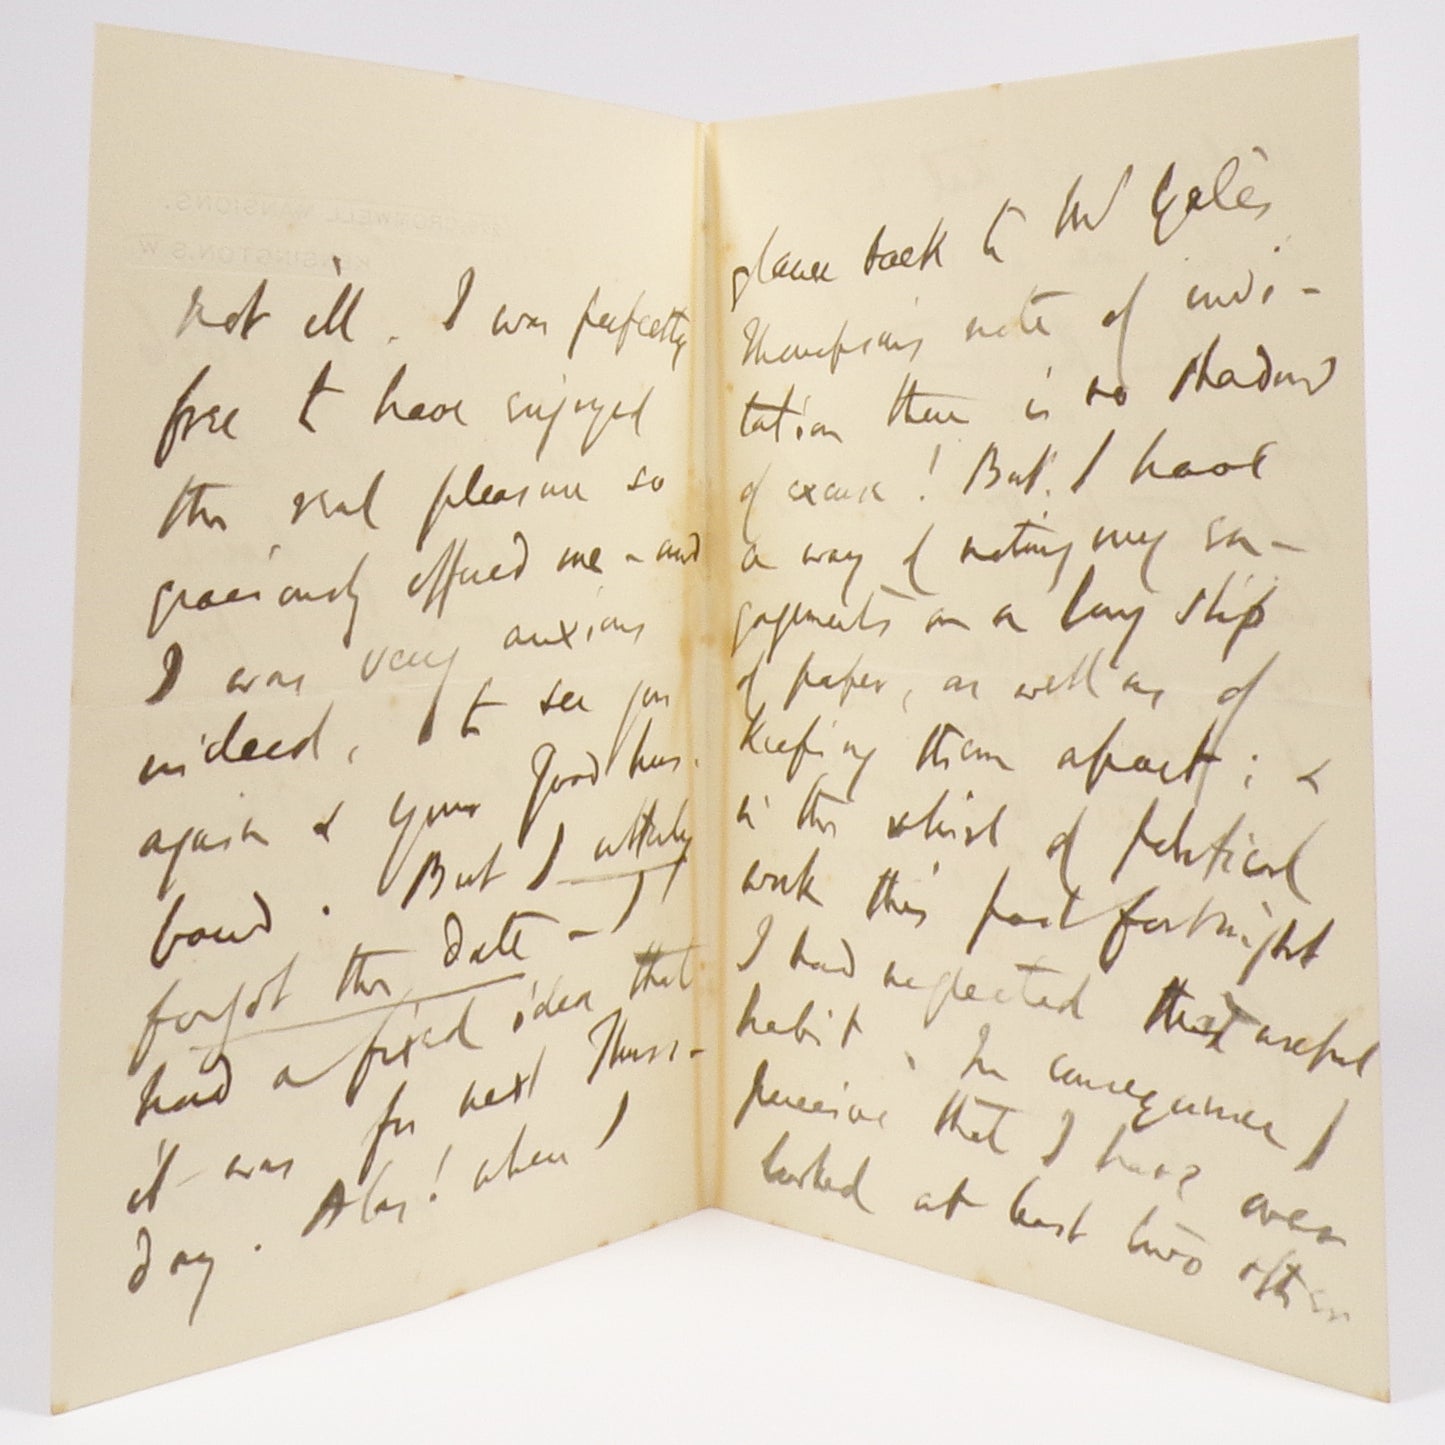 CROMWELL MANSIONS.
KENSINGTON. S.W
not ill. I was perfectly
free to have enjoyed
the real pleasure so
graciously offered me - and
I was very anxious
indeed, to see you
again & your good hus-
band. But I utterly
forgot the date - I
had a fixed idea that
it was for next Thurs-
day. Alas! when I
glance back to Mr
Thompson's note of invi-
tation there is no shadow
of excuse! But I have
a way of noting my en-
gagements on a long slip
of paper, as well as of
keeping them apart; &
in the whirl of political
work this past fortnight
I had neglected that useful
habit. In consequence I
perceive that I have over
looked at least two other